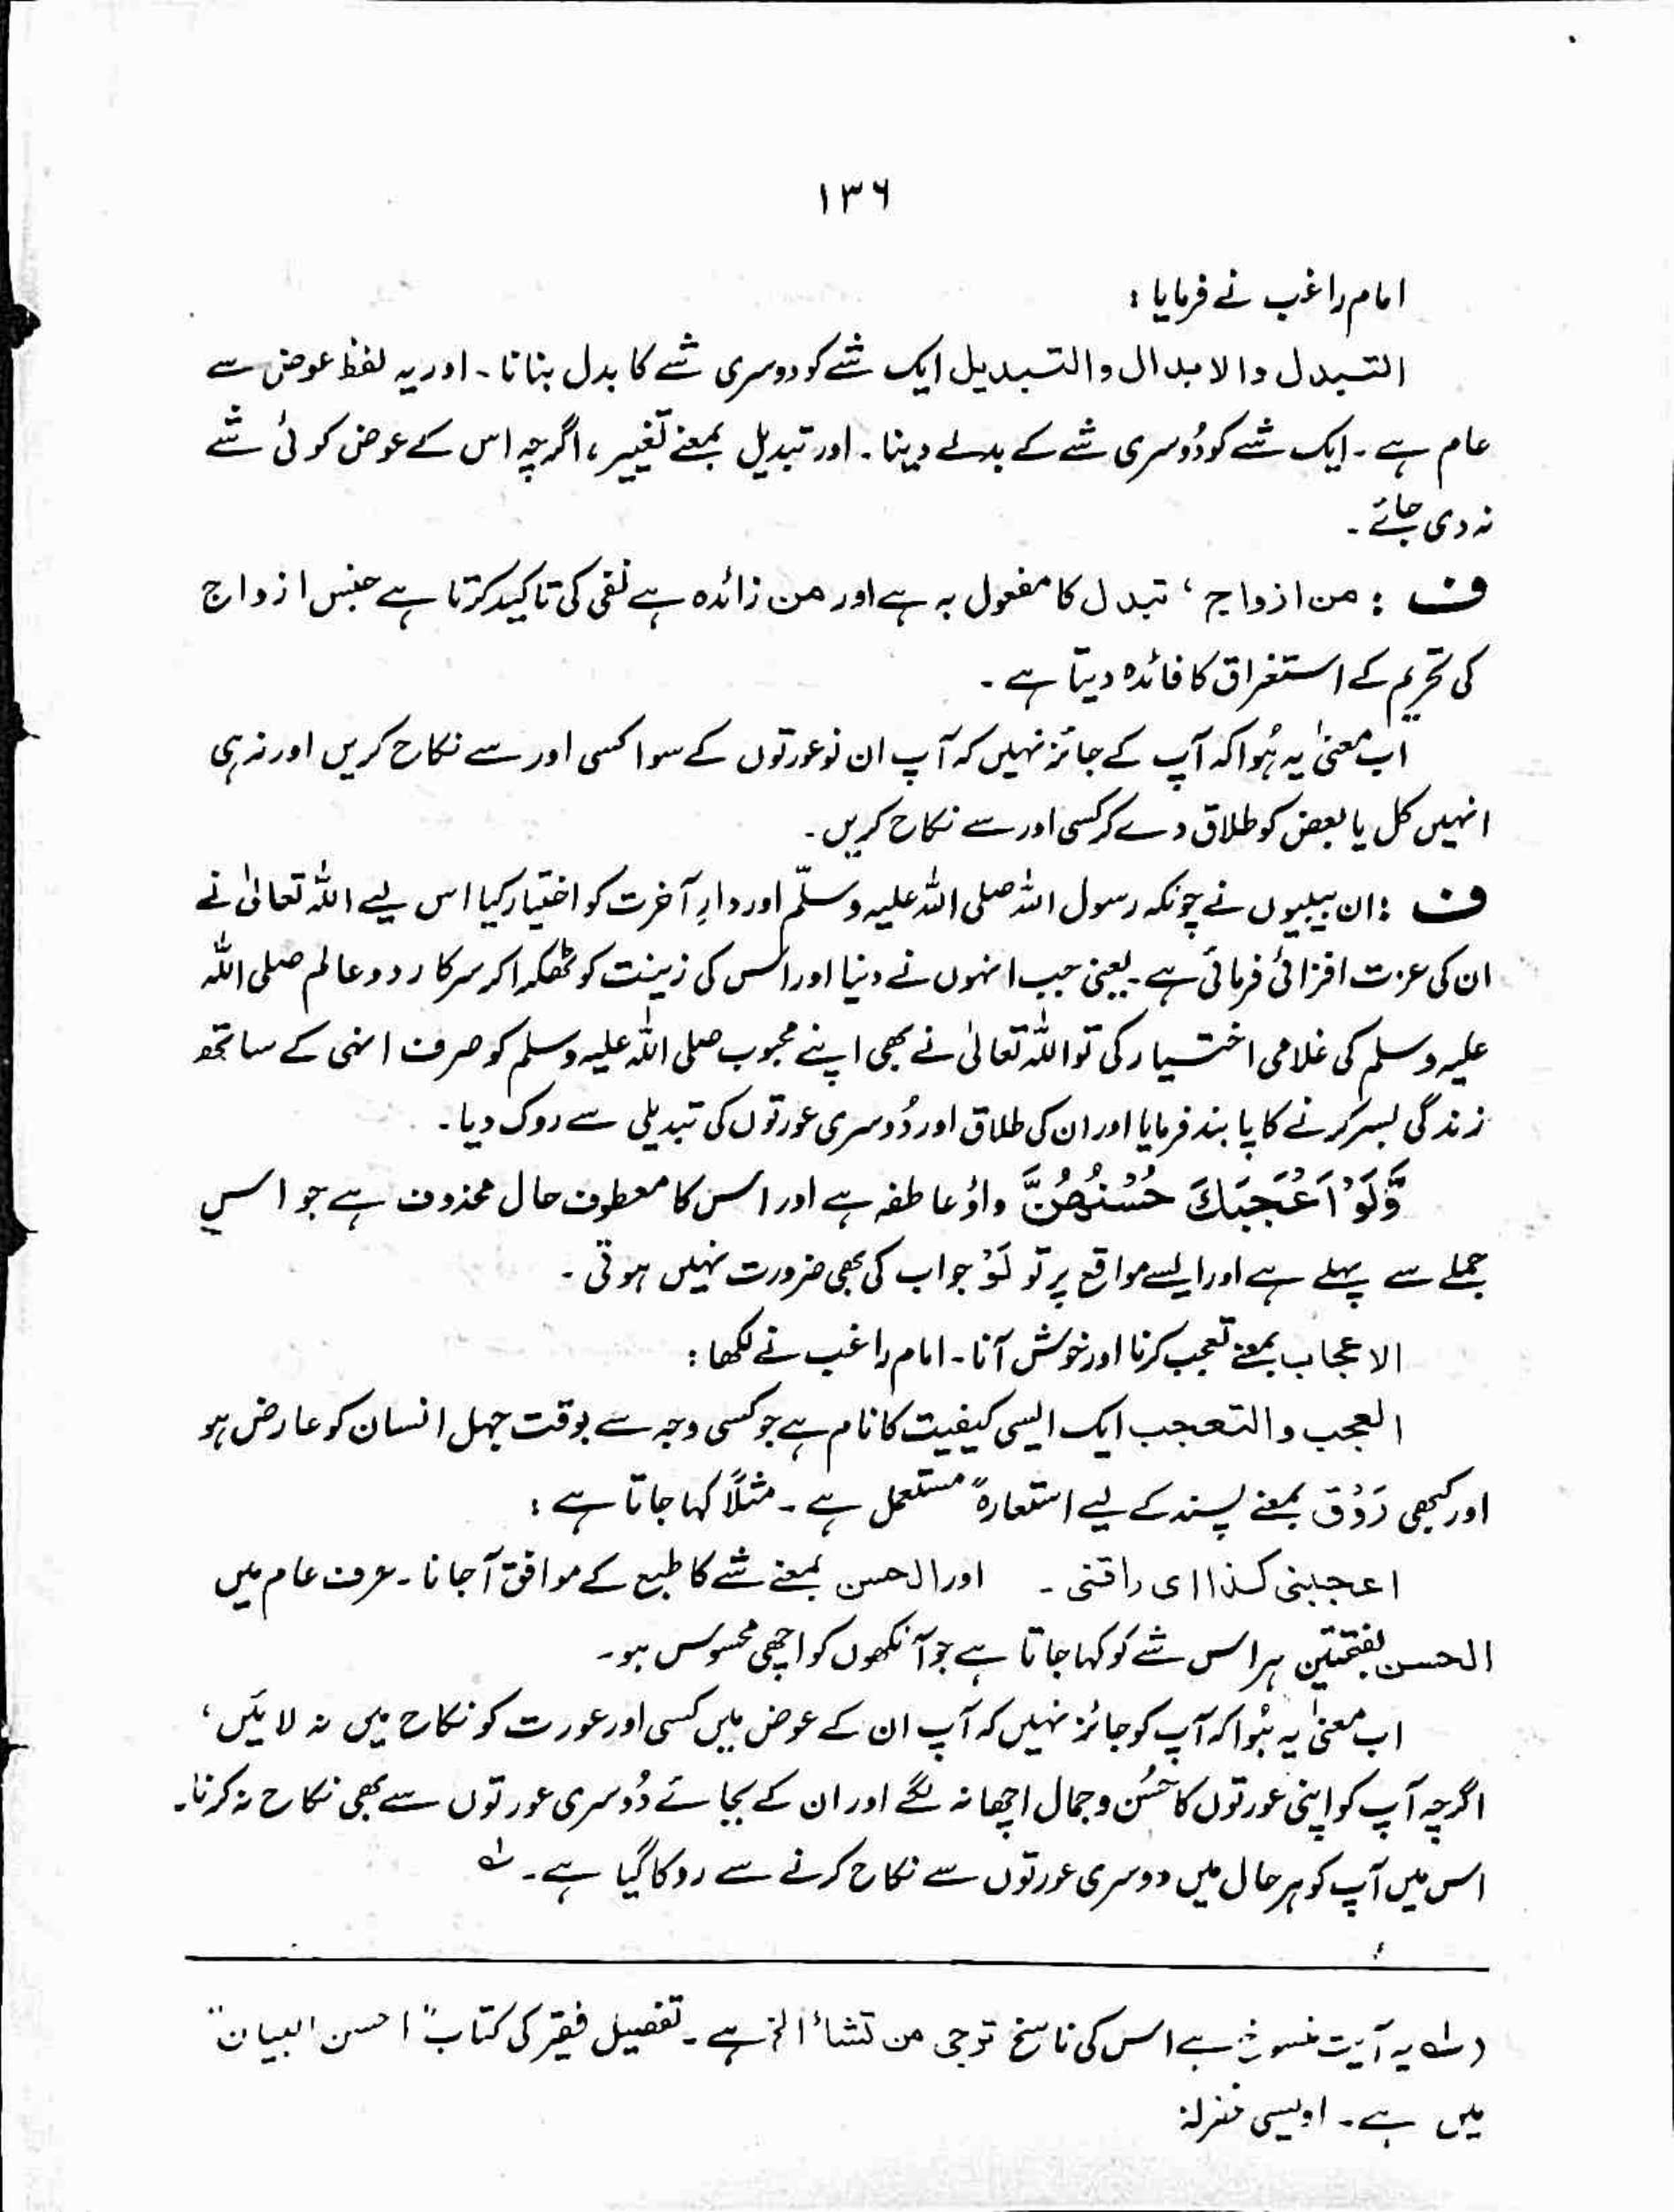 ۱۳۶
امام راغب نے فرمایا :
التبدل والابدال والتبدیل ایک شے کو دوسری شے کا بدل بنانا۔ اور یہ لفظ عوض سے
عام ہے۔ ایک شے کو دُوسری شے کے بدلے دینا۔ اور تبدیل بمعنے تغییر ، اگرچہ اس کے عوض کوئی شے
نہ دی جائے ۔
ف : من ازواج ، تبدل کا مفعول بہ ہے اور من زائدہ ہے نفی کی تاکید کرتا ہے جنس ازواج
کی تحریم کے استغراق کا فائدہ دیتا ہے ۔
اب معنیٰ یہ ہُوا کہ آپ کے جائز نہیں کہ آپ ان نو عورتوں کے سوا کسی اور سے نکاح کریں اور نہ ہی
انہیں کل یا بعض کو طلاق دے کر کسی اور سے نکاح کریں ۔
ف : ان بیبیوں نے چونکہ رسول اللہ صلی اللہ علیہ وسلّم اور دارِ آخرت کو اختیار کیا اس لیے اللہ تعالیٰ نے
ان کی عزت افزائی فرمائی ہے۔ یعنی جب انہوں نے دنیا اور اس کی زینت کو ٹھکرا کر سرکار دو عالم صلی اللہ
علیہ وسلم کی غلامی اختیار کی تو اللہ تعالیٰ نے بھی اپنے محبوب صلی اللہ علیہ وسلم کو صرف انہی کے ساتھ
زندگی بسر کرنے کا پابند فرمایا اور ان کی طلاق اور دُوسری عورتوں کی تبدیلی سے روک دیا ۔
وَّلَوْ اَعْجَبَكَ حُسْنُهُنَّ واؤ عاطفہ ہے اور اس کا معطوف حال محذوف ہے جو اس
جملے سے پہلے ہے اور ایسے مواقع پر تو لَوْ جواب کی بھی ضرورت نہیں ہوتی ۔
الاعجاب بمعنے تعجب کرنا اور خوش آنا۔ امام راغب نے لکھا :
العجب و التعجب ایک ایسی کیفیت کا نام ہے جو کسی وجہ سے بوقت جہل انسان کو عارض ہو
اور کبھی رَوْق بمعنے پسند کے لیے استعارۃً مستعمل ہے ۔ مثلاً کہا جاتا ہے :
اعجبنی کذا ای راقنی ۔ اور الحسن بمعنے شے کا طبع کے موافق آجانا۔ عرف عام میں
الحسن بفتحتین ہر اس شے کو کہا جاتا ہے جو آنکھوں کو اچھی محسوس ہو۔
اب معنیٰ یہ ہُوا کہ آپ کو جائز نہیں کہ آپ ان کے عوض میں کسی اور عورت کو نکاح میں نہ لائیں ،
اگرچہ آپ کو اپنی عورتوں کا حُسن و جمال اچھا نہ لگے اور ان کے بجائے دُوسری عورتوں سے بھی نکاح نہ کرنا۔
اس میں آپ کو ہر حال میں دوسری عورتوں سے نکاح کرنے سے روکا گیا ہے۔ لہ
(لہ یہ آیت منسوخ ہے اس کی ناسخ ترجی من تشاء الخ ہے۔ تفصیل فقیر کی کتاب "احسن البیان"
میں ہے۔ اویسی غفرلہ